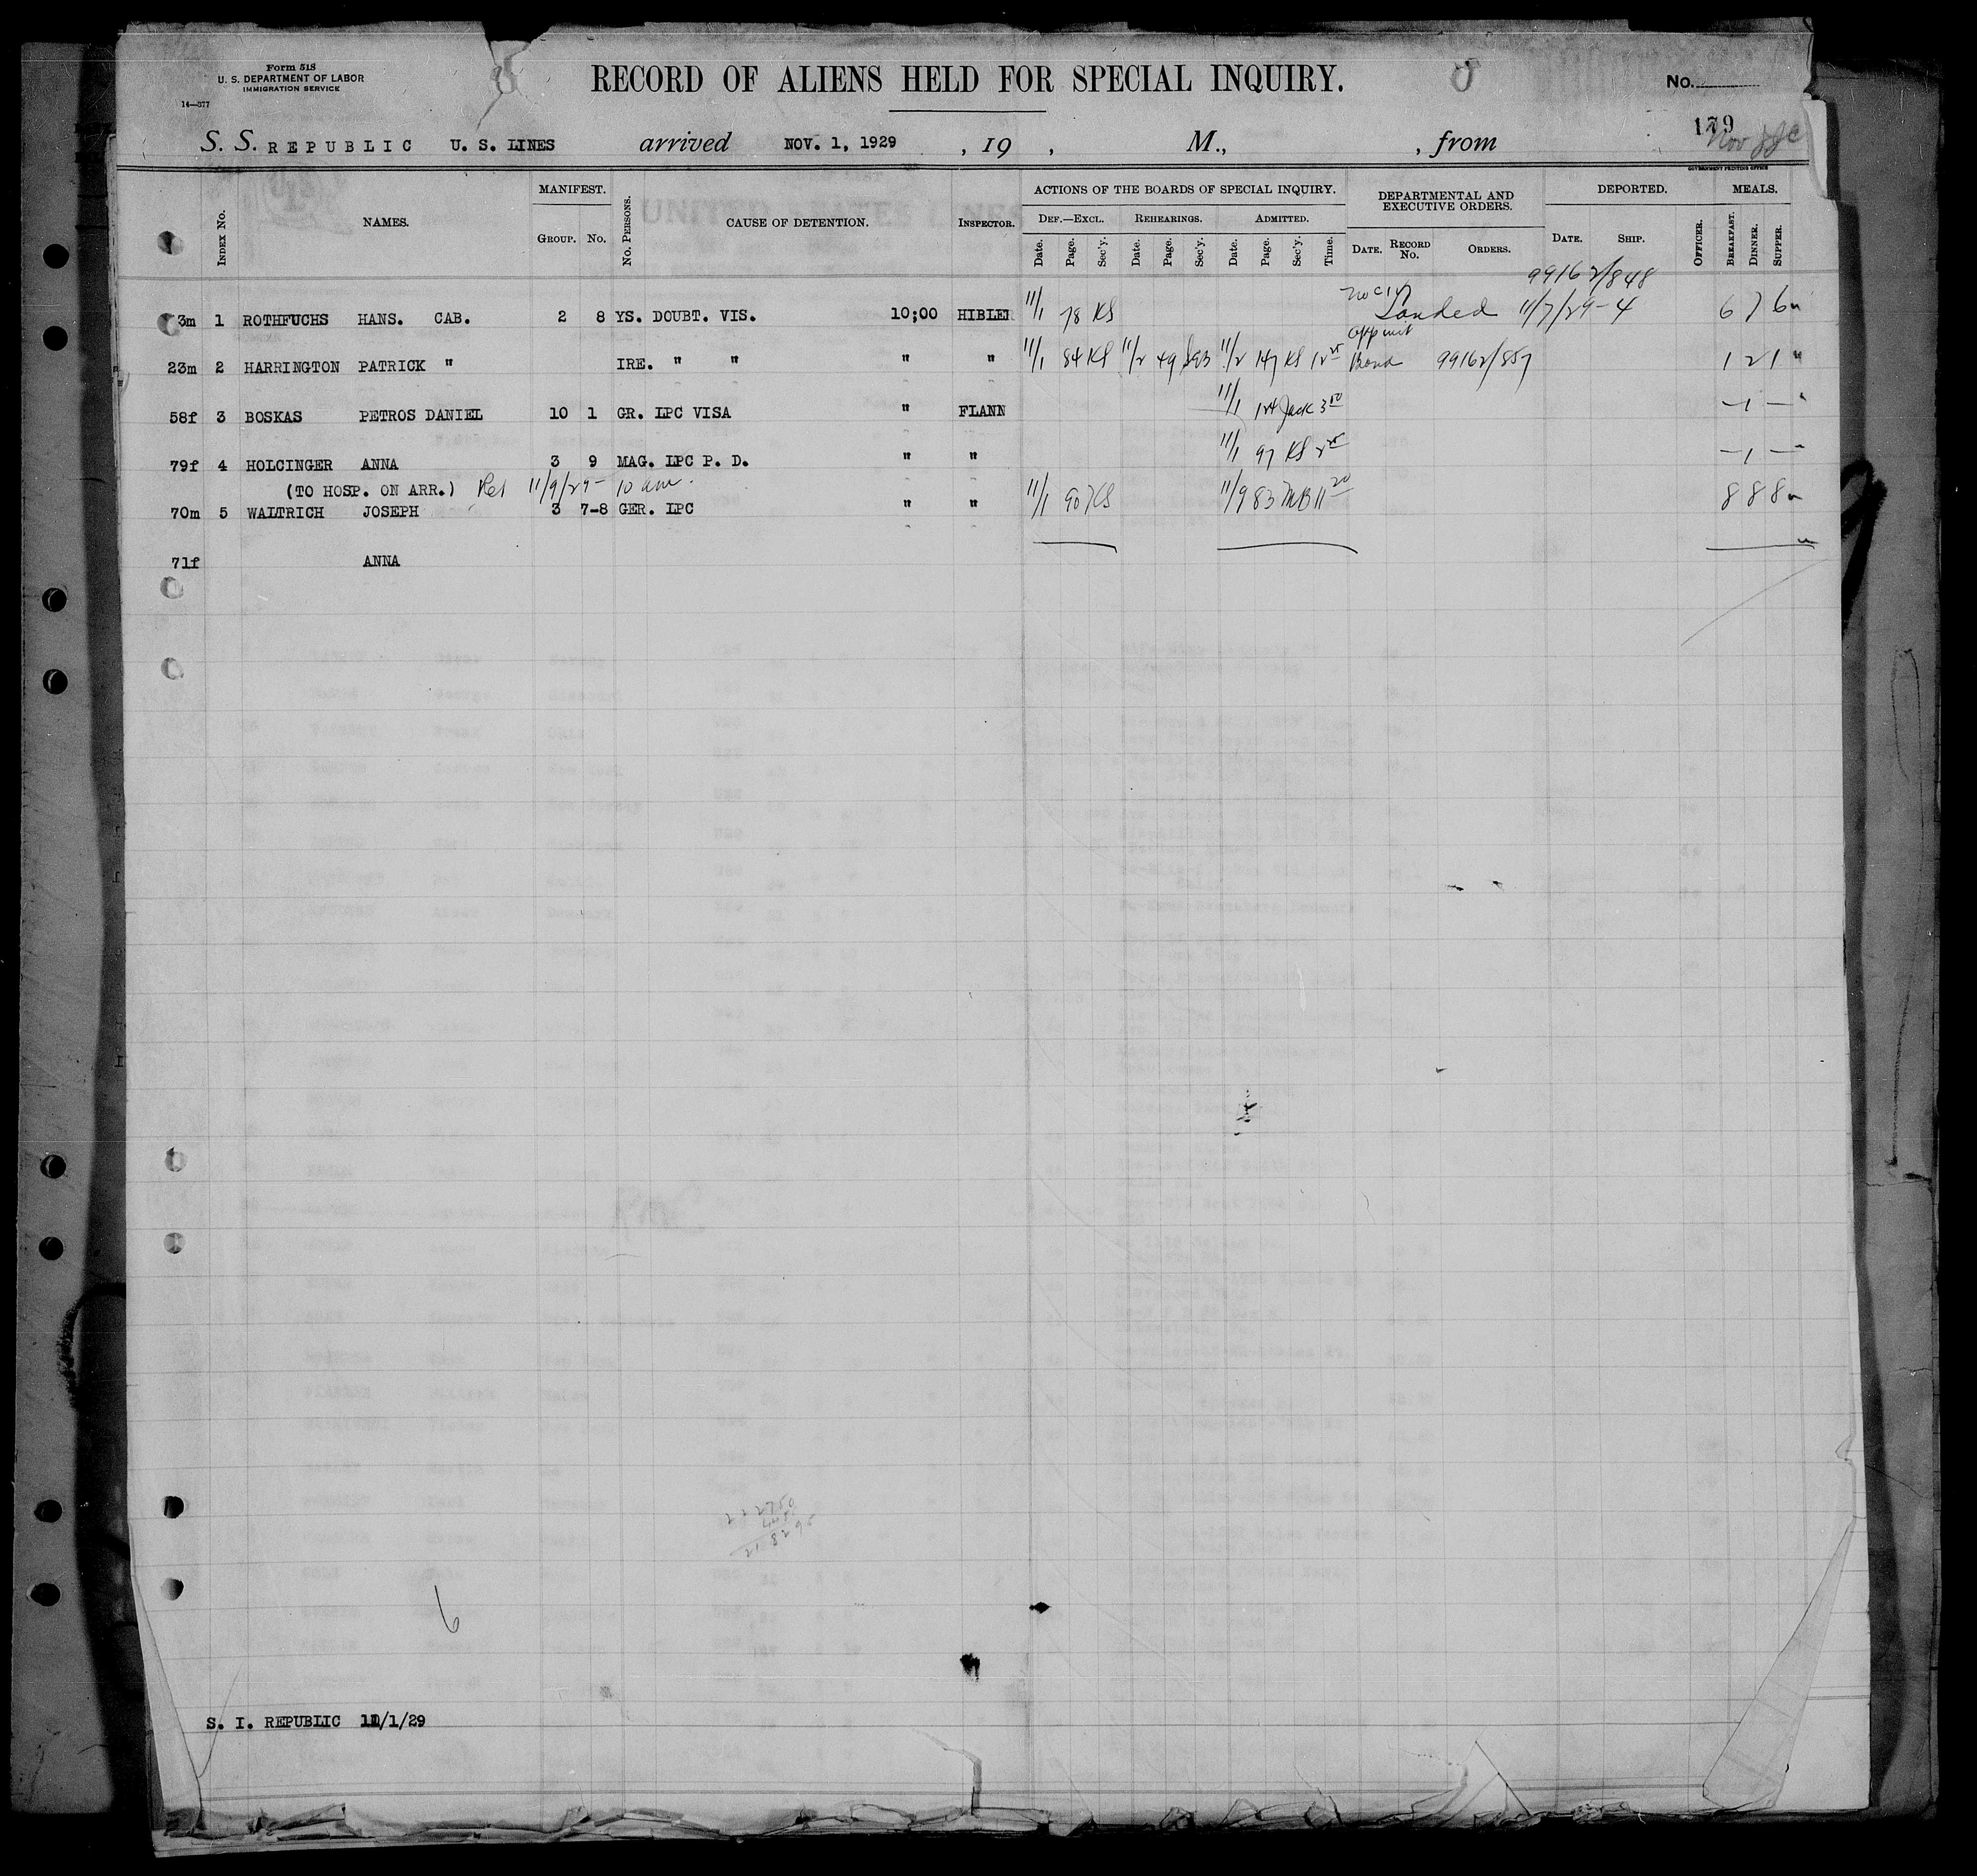 Form 518
U. S. DEPARTMENT OF LABOR
IMMIGRATION SERVICE
14—377
RECORD OF ALIENS HELD FOR SPECIAL INQUIRY.
No.
179
S. S. REPUBLIC U. S. LINES arrived NOV. 1, 1929, 19 , M., , from
GOVERNMENT PRINTING OFFICE
INDEX No. NAMES. MANIFEST. GROUP. No. No. PERSONS. CAUSE OF DETENTION. INSPECTOR. ACTIONS OF THE BOARDS OF SPECIAL INQUIRY. DEF.—EXCL. Date. Page. Sec'y. REHEARINGS. Date. Page. Sec'y. ADMITTED. Date. Page. Sec'y. Time. DEPARTMENTAL AND EXECUTIVE ORDERS. DATE. RECORD No. ORDERS. DEPORTED. DATE. SHIP. OFFICER. MEALS. BREAKFAST. DINNER. SUPPER.
99162/848
3m 1 ROTHFUCHS HANS. CAB. 2 8 YS. DOUBT. VIS. 10;00 HIBLER 11/1 78 KS Landed 11/7/29-4 6 7 6
23m 2 HARRINGTON PATRICK " IRE. " " " " 11/1 84 KS 11/2 49 11/2 147 KS Bond 99162/857 1 2 1 "
58f 3 BOSKAS PETROS DANIEL 10 1 GR. LPC VISA " FLANN 11/1 Jack 3 – 1 –
79f 4 HOLCINGER ANNA 3 9 MAG. LPC P. D. " " 11/1 97 KS – 1 –
(TO HOSP. ON ARR.) Rel 11/9/29- 10 am.
70m 5 WALTRICH JOSEPH 3 7-8 GER. LPC " " 11/1 90 KS 11/9 83 MB 11 20 8 8 8
71f ANNA
6
S. I. REPUBLIC 11/1/29